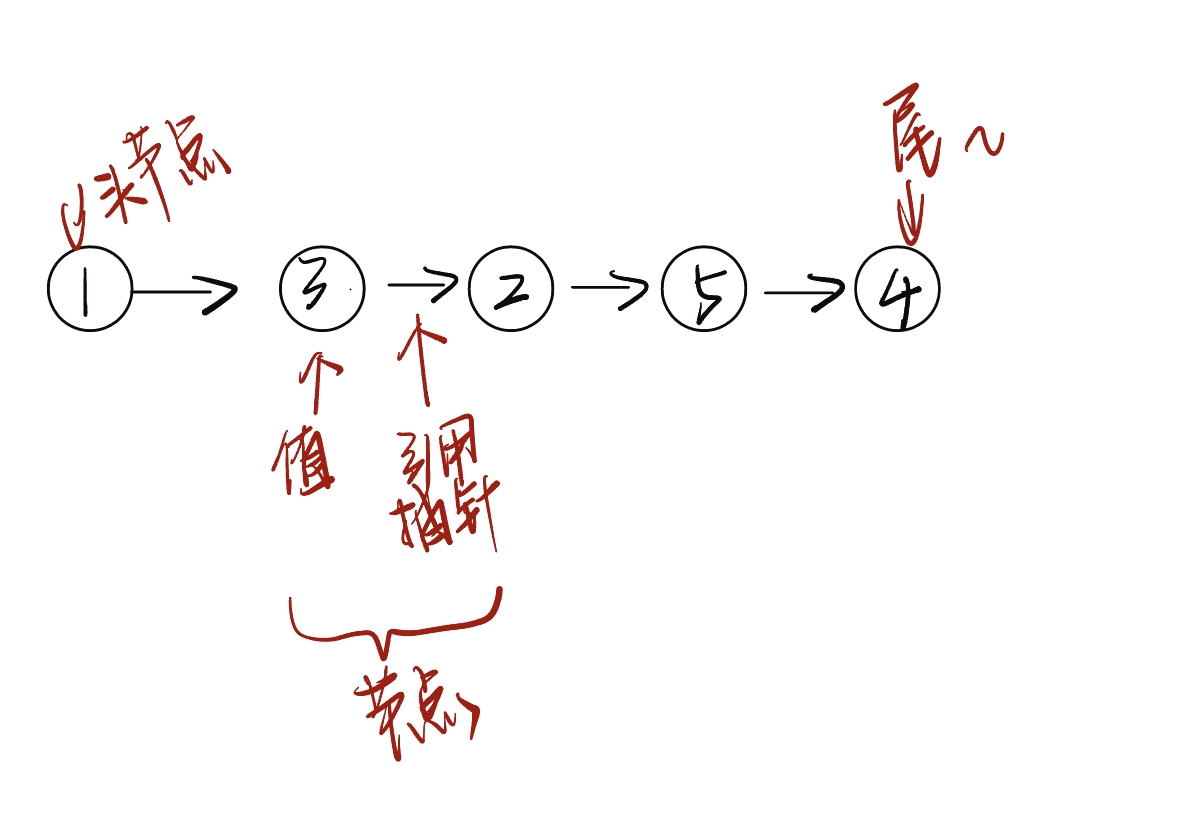 头节点
尾~
1 → 3 → 2 → 5 → 4
值
引用
指针
节点